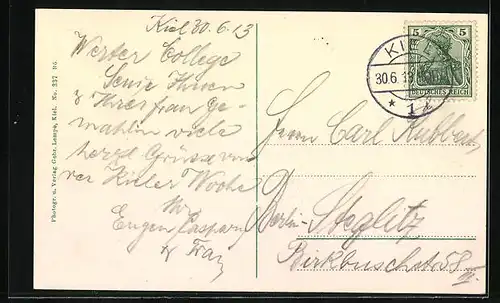 Kiel 30.6.13
Werter College
Sende Ihnen
& Ihrer frau Ge-
mahlin viele
herzl Grüsse von
der Kieler Woche
Ihr
Eugen
& Frau
Photogr. u. Verlag Gebr. Lempe, Kiel. No. 237
5 5
DEUTSCHES REICH
KIEL
30.6.13
* 1
Herrn Carl
Berlin-Steglitz
Birkbuschstr 58 III.